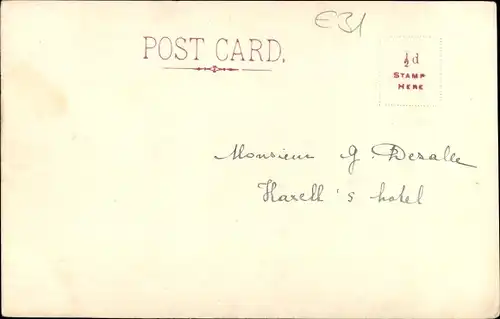 E31
POST CARD.
½d
STAMP
HERE
Monsieur G. Desalle
Haxell's hotel